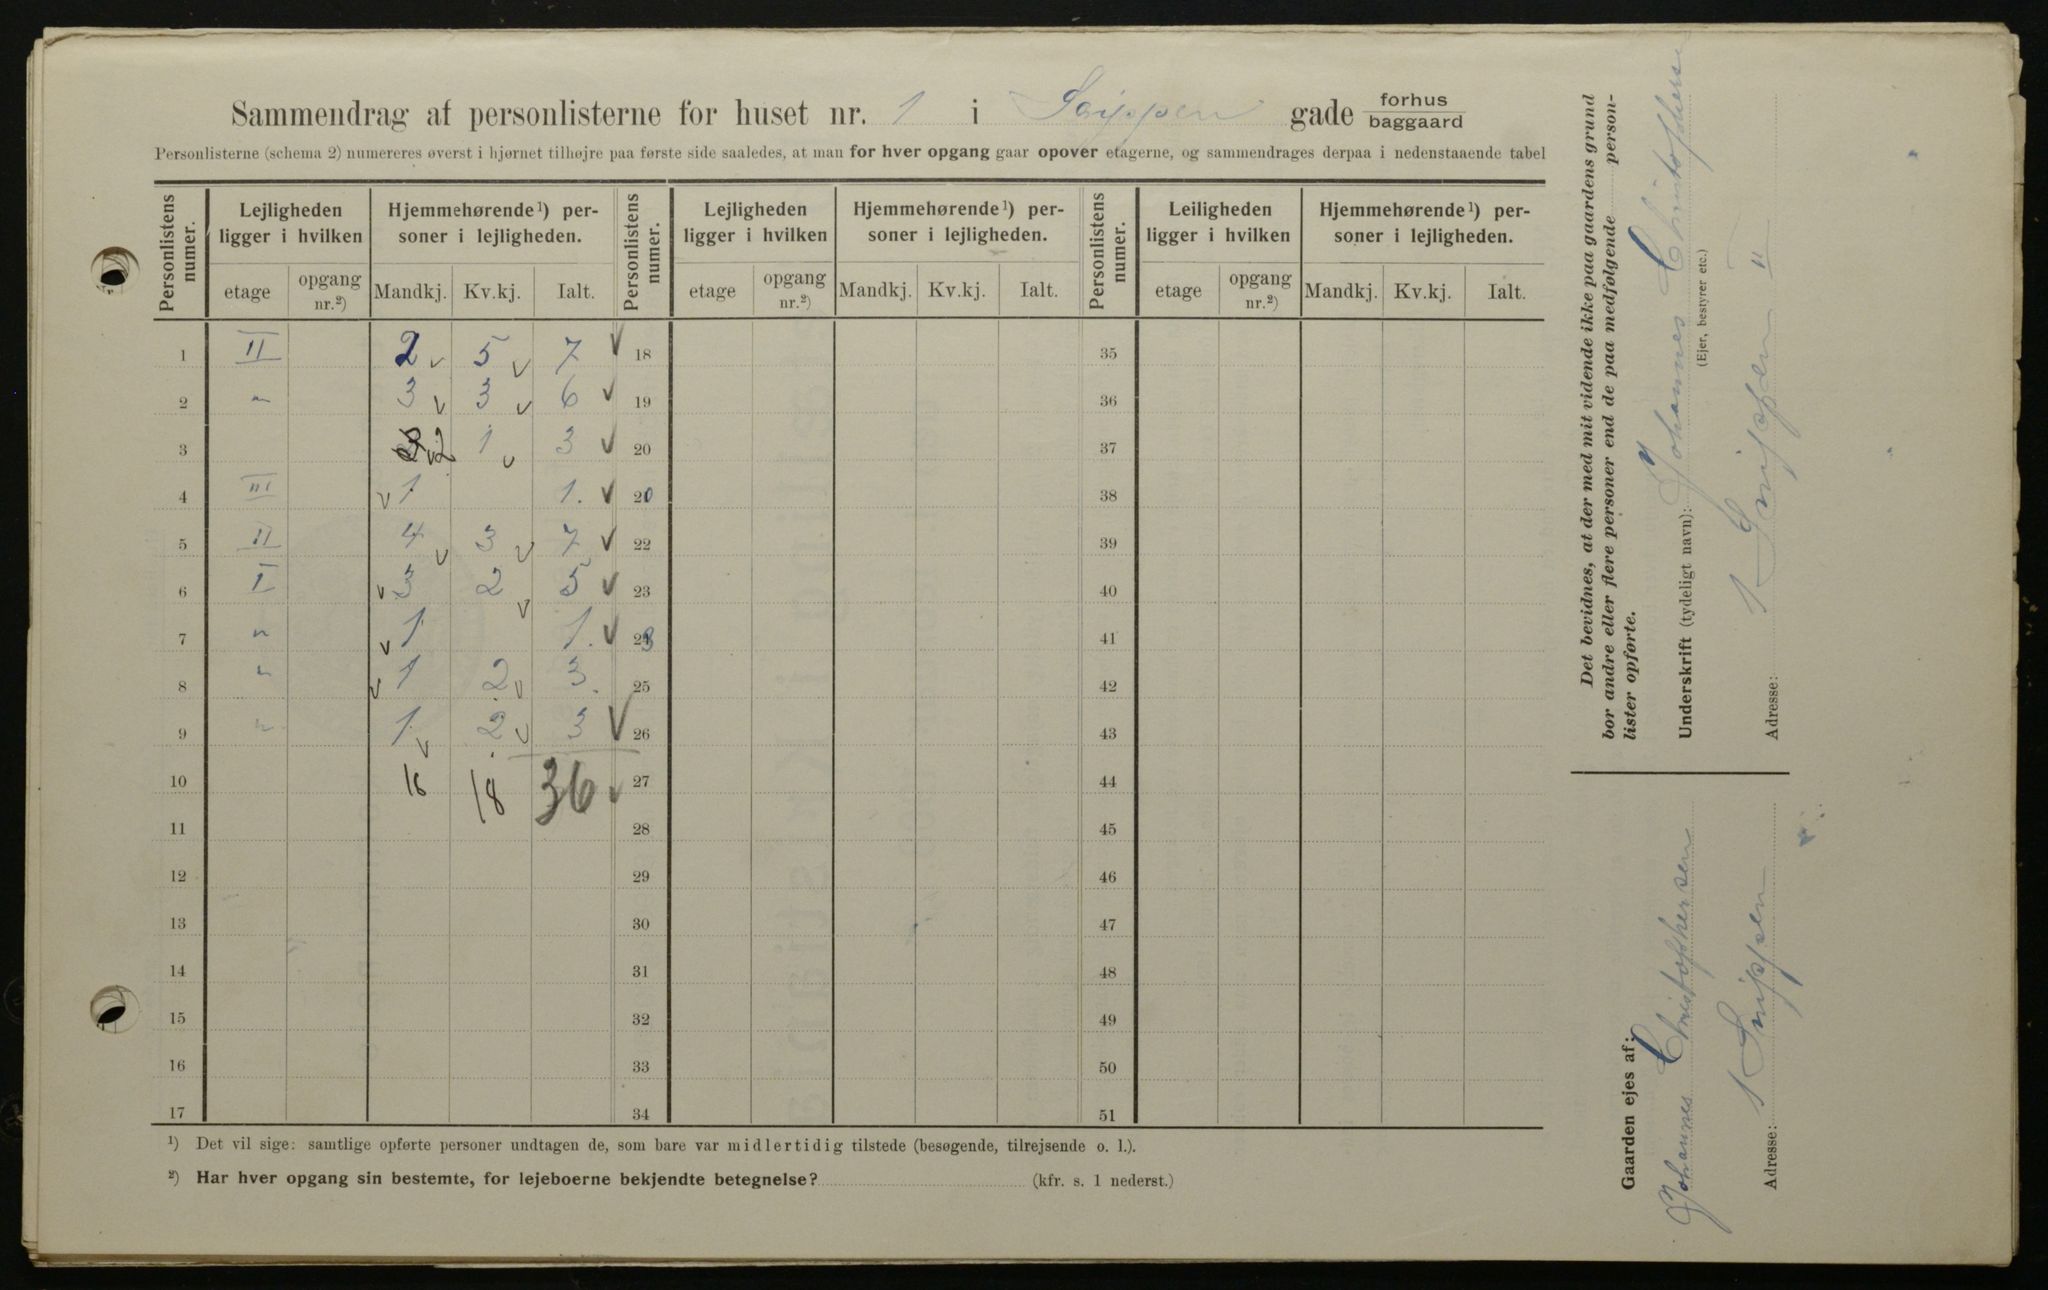 Sammendrag af personlisterne for huset nr. 1 i Snippen gade forhus
baggaard
Personlisterne (schema 2) numereres øverst i hjørnet tilhøjre paa første side saaledes, at man for hver opgang gaar opover etagerne, og sammendrages derpaa i nedenstaaende tabel
Personlistens numer. Lejligheden ligger i hvilken Hjemmehørende¹) personer i lejligheden. Personlistens numer. Lejligheden ligger i hvilken Hjemmehørende¹) personer i lejligheden. Personlistens numer. Leiligheden ligger i hvilken Hjemmehørende¹) personer i lejligheden.
etage opgang nr.²) Mandkj. Kv.kj. Ialt. etage opgang nr.²) Mandkj. Kv.kj. Ialt. etage opgang nr.²) Mandkj. Kv.kj. Ialt.
1 II 2 v 5 v 7 v 18 35
2 " 3 v 3 v 6 v 19 36
3 2 v 1 v 3 v 20 37
4 III v 1 1. v 20 38
5 II 4 v 3 v 7 v 22 39
6 I v 3 2 v 5 v 23 40
7 " v 1 1. v 41
8 " v 1 2 v 3. 25 42
9 " 1 v 2 v 3 v 26 43
10 18 18 36 v 27 44
11 28 45
12 29 46
13 30 47
14 31 48
15 32 49
16 33 50
17 34 51
¹) Det vil sige: samtlige opførte personer undtagen de, som bare var midlertidig tilstede (besøgende, tilrejsende o. l.).
²) Har hver opgang sin bestemte, for lejeboerne bekjendte betegnelse? (kfr. s. 1 nederst.)
Det bevidnes, at der med mit vidende ikke paa gaardens grund
bor andre eller flere personer end de paa medfølgende personlister opførte.
Underskrift (tydeligt navn): Johannes Christophersen
(Ejer, bestyrer etc.)
Adresse: 1 Snippen II
Gaarden ejes af:
Johannes Christophersen
Adresse: 1 Snippen